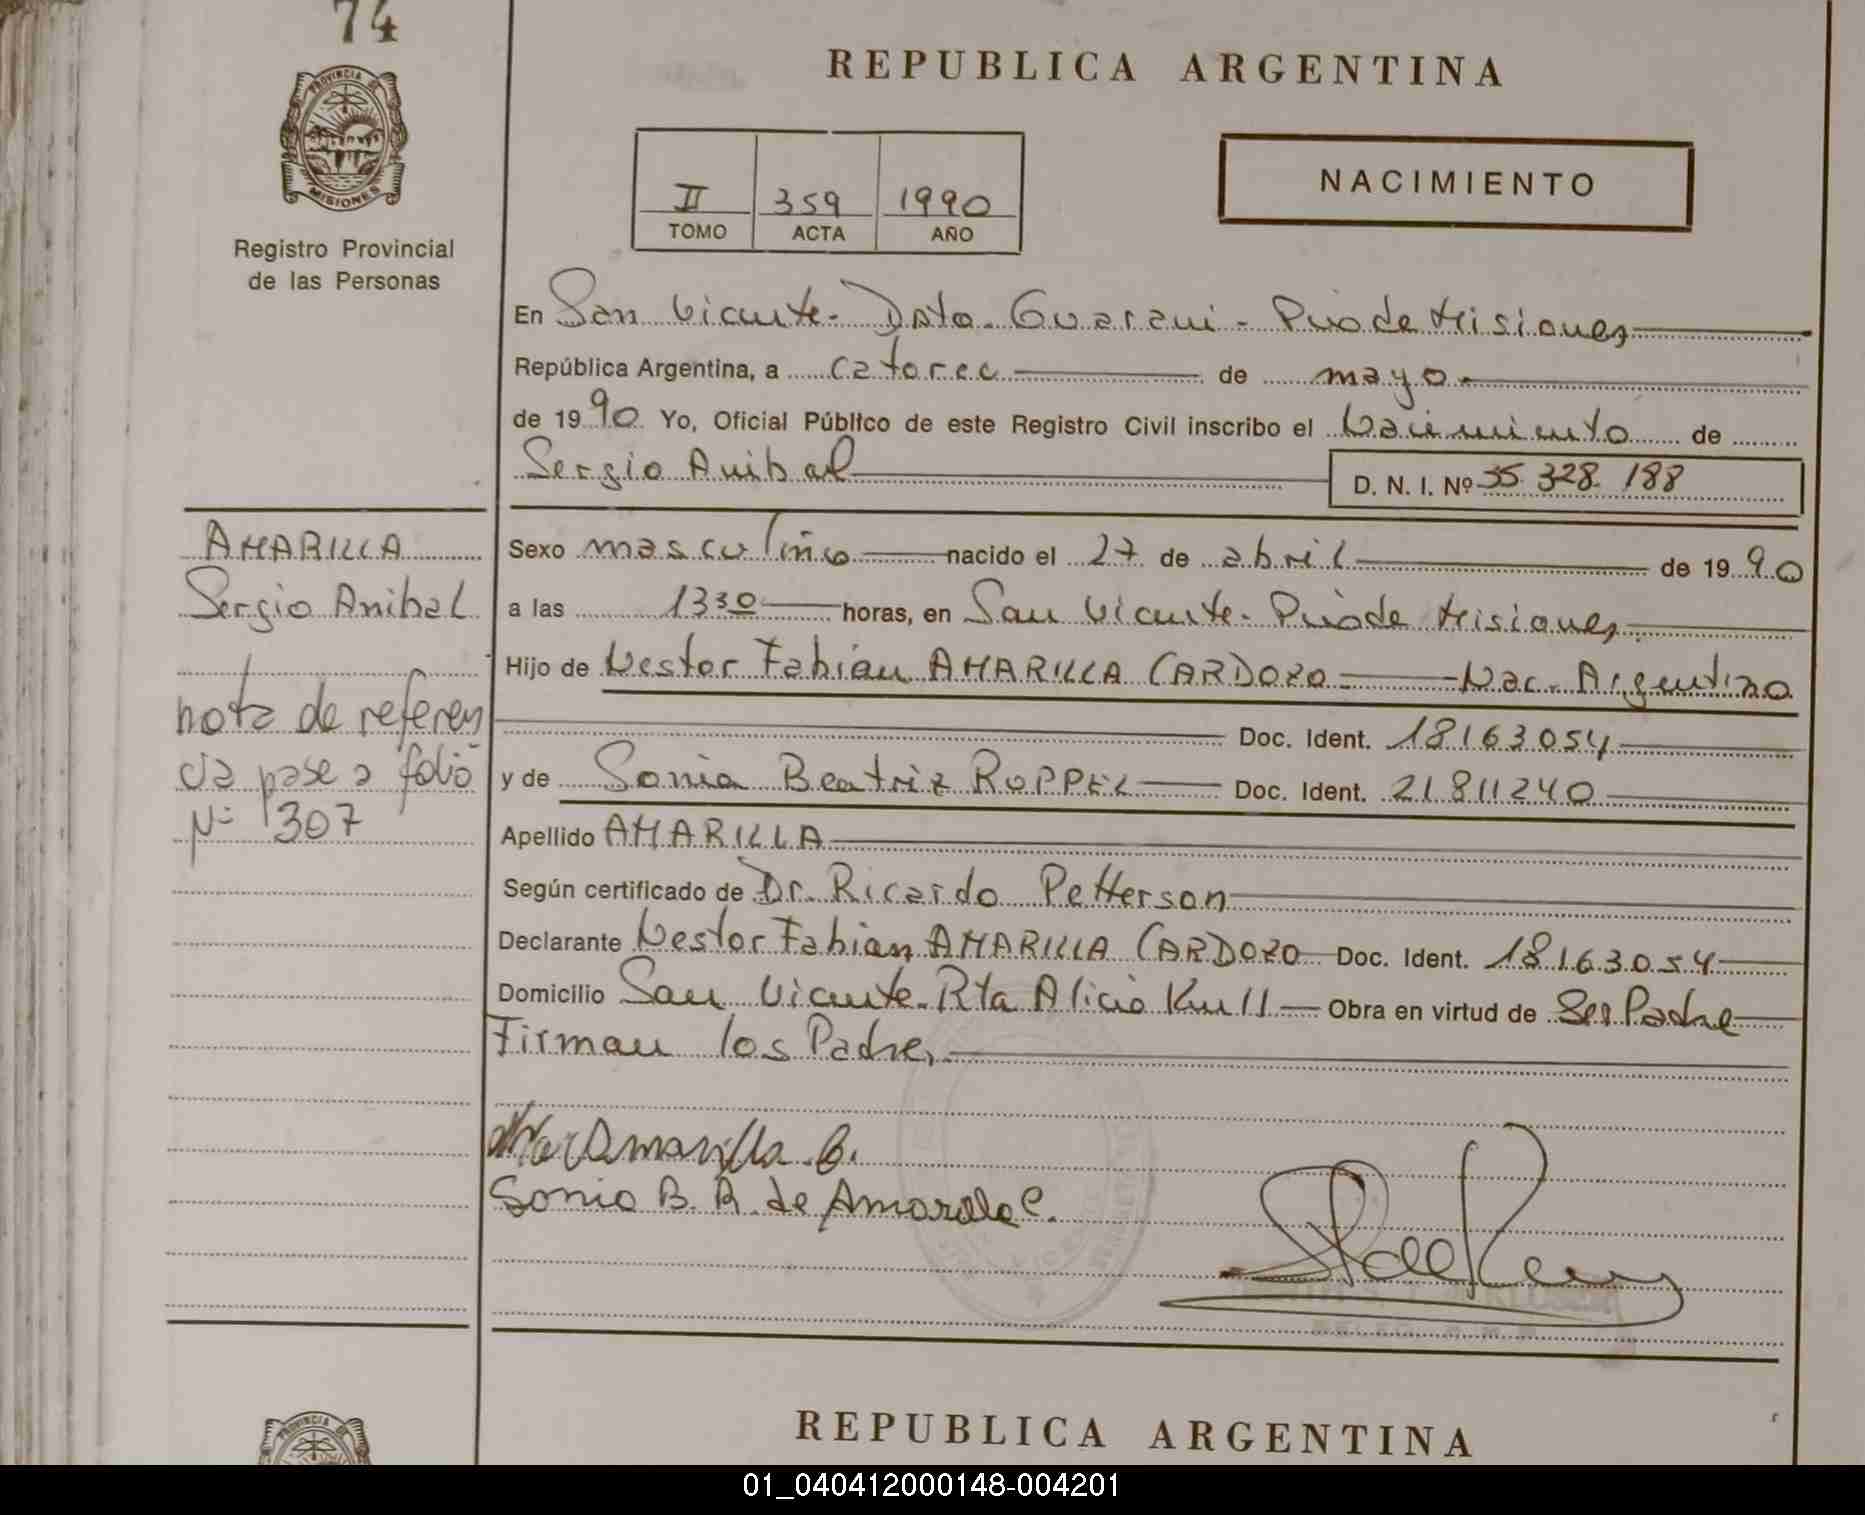 74
PROVINCIA DE
MISIONES
Registro Provincial
de las Personas
REPUBLICA ARGENTINA
II 359 1990
TOMO ACTA AÑO
NACIMIENTO
En San Vicente - Dpto. Guarani - Pvia de Misiones
República Argentina, a catorce de mayo
de 1990 Yo, Oficial Público de este Registro Civil inscribo el Nacimiento de
Sergio Anibal
D. N. I. Nº 35.328.188
AMARILLA
Sergio Anibal
nota de referen
cia pase a folio
Nº 307
Sexo masculino nacido el 27 de abril de 1990
a las 13 30 horas, en San Vicente - Pvia de Misiones
Hijo de Nestor Fabián AMARILLA CARDOZO Nac. Argentina
Doc. Ident. 18163054
y de Sonia Beatriz ROPPEL Doc. Ident. 21811240
Apellido AMARILLA
Según certificado de Dr. Ricardo Petterson
Declarante Nestor Fabian AMARILLA CARDOZO Doc. Ident. 18163054
Domicilio San Vicente - Rta Alicia Km 11 Obra en virtud de Ser Padre
Firman los Padres
Amarilla C.
Sonia B. R. de Amarilla C.
REPUBLICA ARGENTINA
01_040412000148-004201